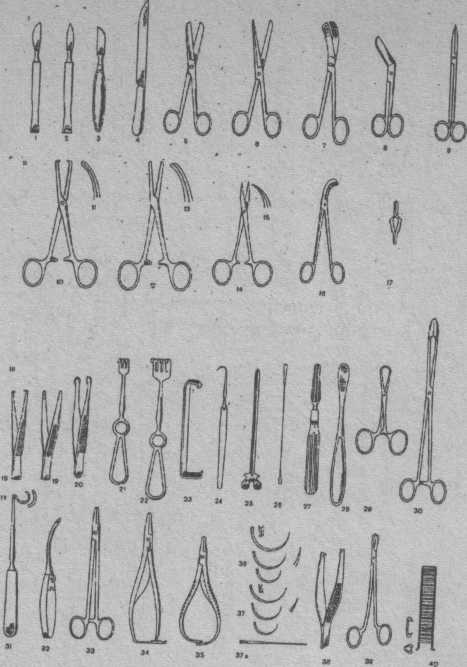 1 2 3 4 5 6 7 8 9
11 13 15
10 12 14 16 17
18 19 20 21 22 23 24 25 26 27 28 29 30
36
37
31 32 33 34 35 37a 38 39 40